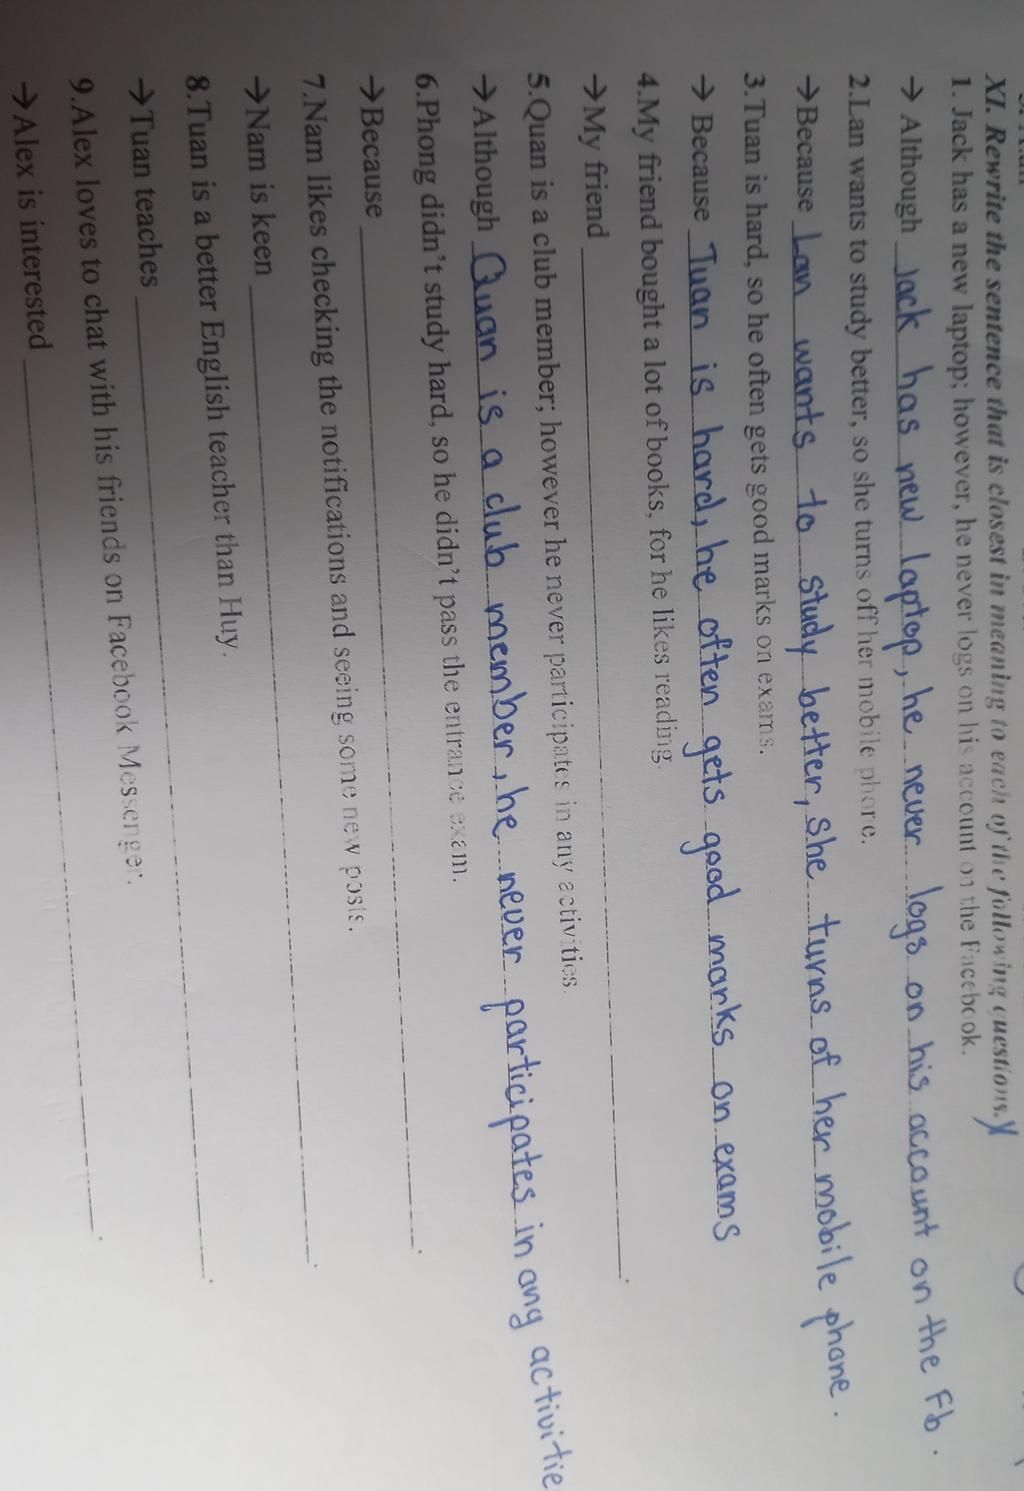 XI. Rewrite the sentence that is closest in meaning to each of the following questions.
1. Jack has a new laptop; however, he never logs on his account on the Facebook.
→ Although Jack has new laptop, he never logs on his account on the Fb.
2.Lan wants to study better, so she turns off her mobile phone.
→Because Lan wants to study better, she turns of her mobile phone.
3.Tuan is hard, so he often gets good marks on exams.
→ Because Tuan is hard, he often gets good marks on exams
4.My friend bought a lot of books, for he likes reading.
→My friend ______.
5.Quan is a club member; however he never participates in any activities.
→Although Quan is a club member, he never participates in any activitie
6.Phong didn't study hard, so he didn't pass the entrance exam.
→Because ______.
7.Nam likes checking the notifications and seeing some new posts.
→Nam is keen ______.
8.Tuan is a better English teacher than Huy.
→Tuan teaches ______.
9.Alex loves to chat with his friends on Facebook Messenger.
→Alex is interested ______.